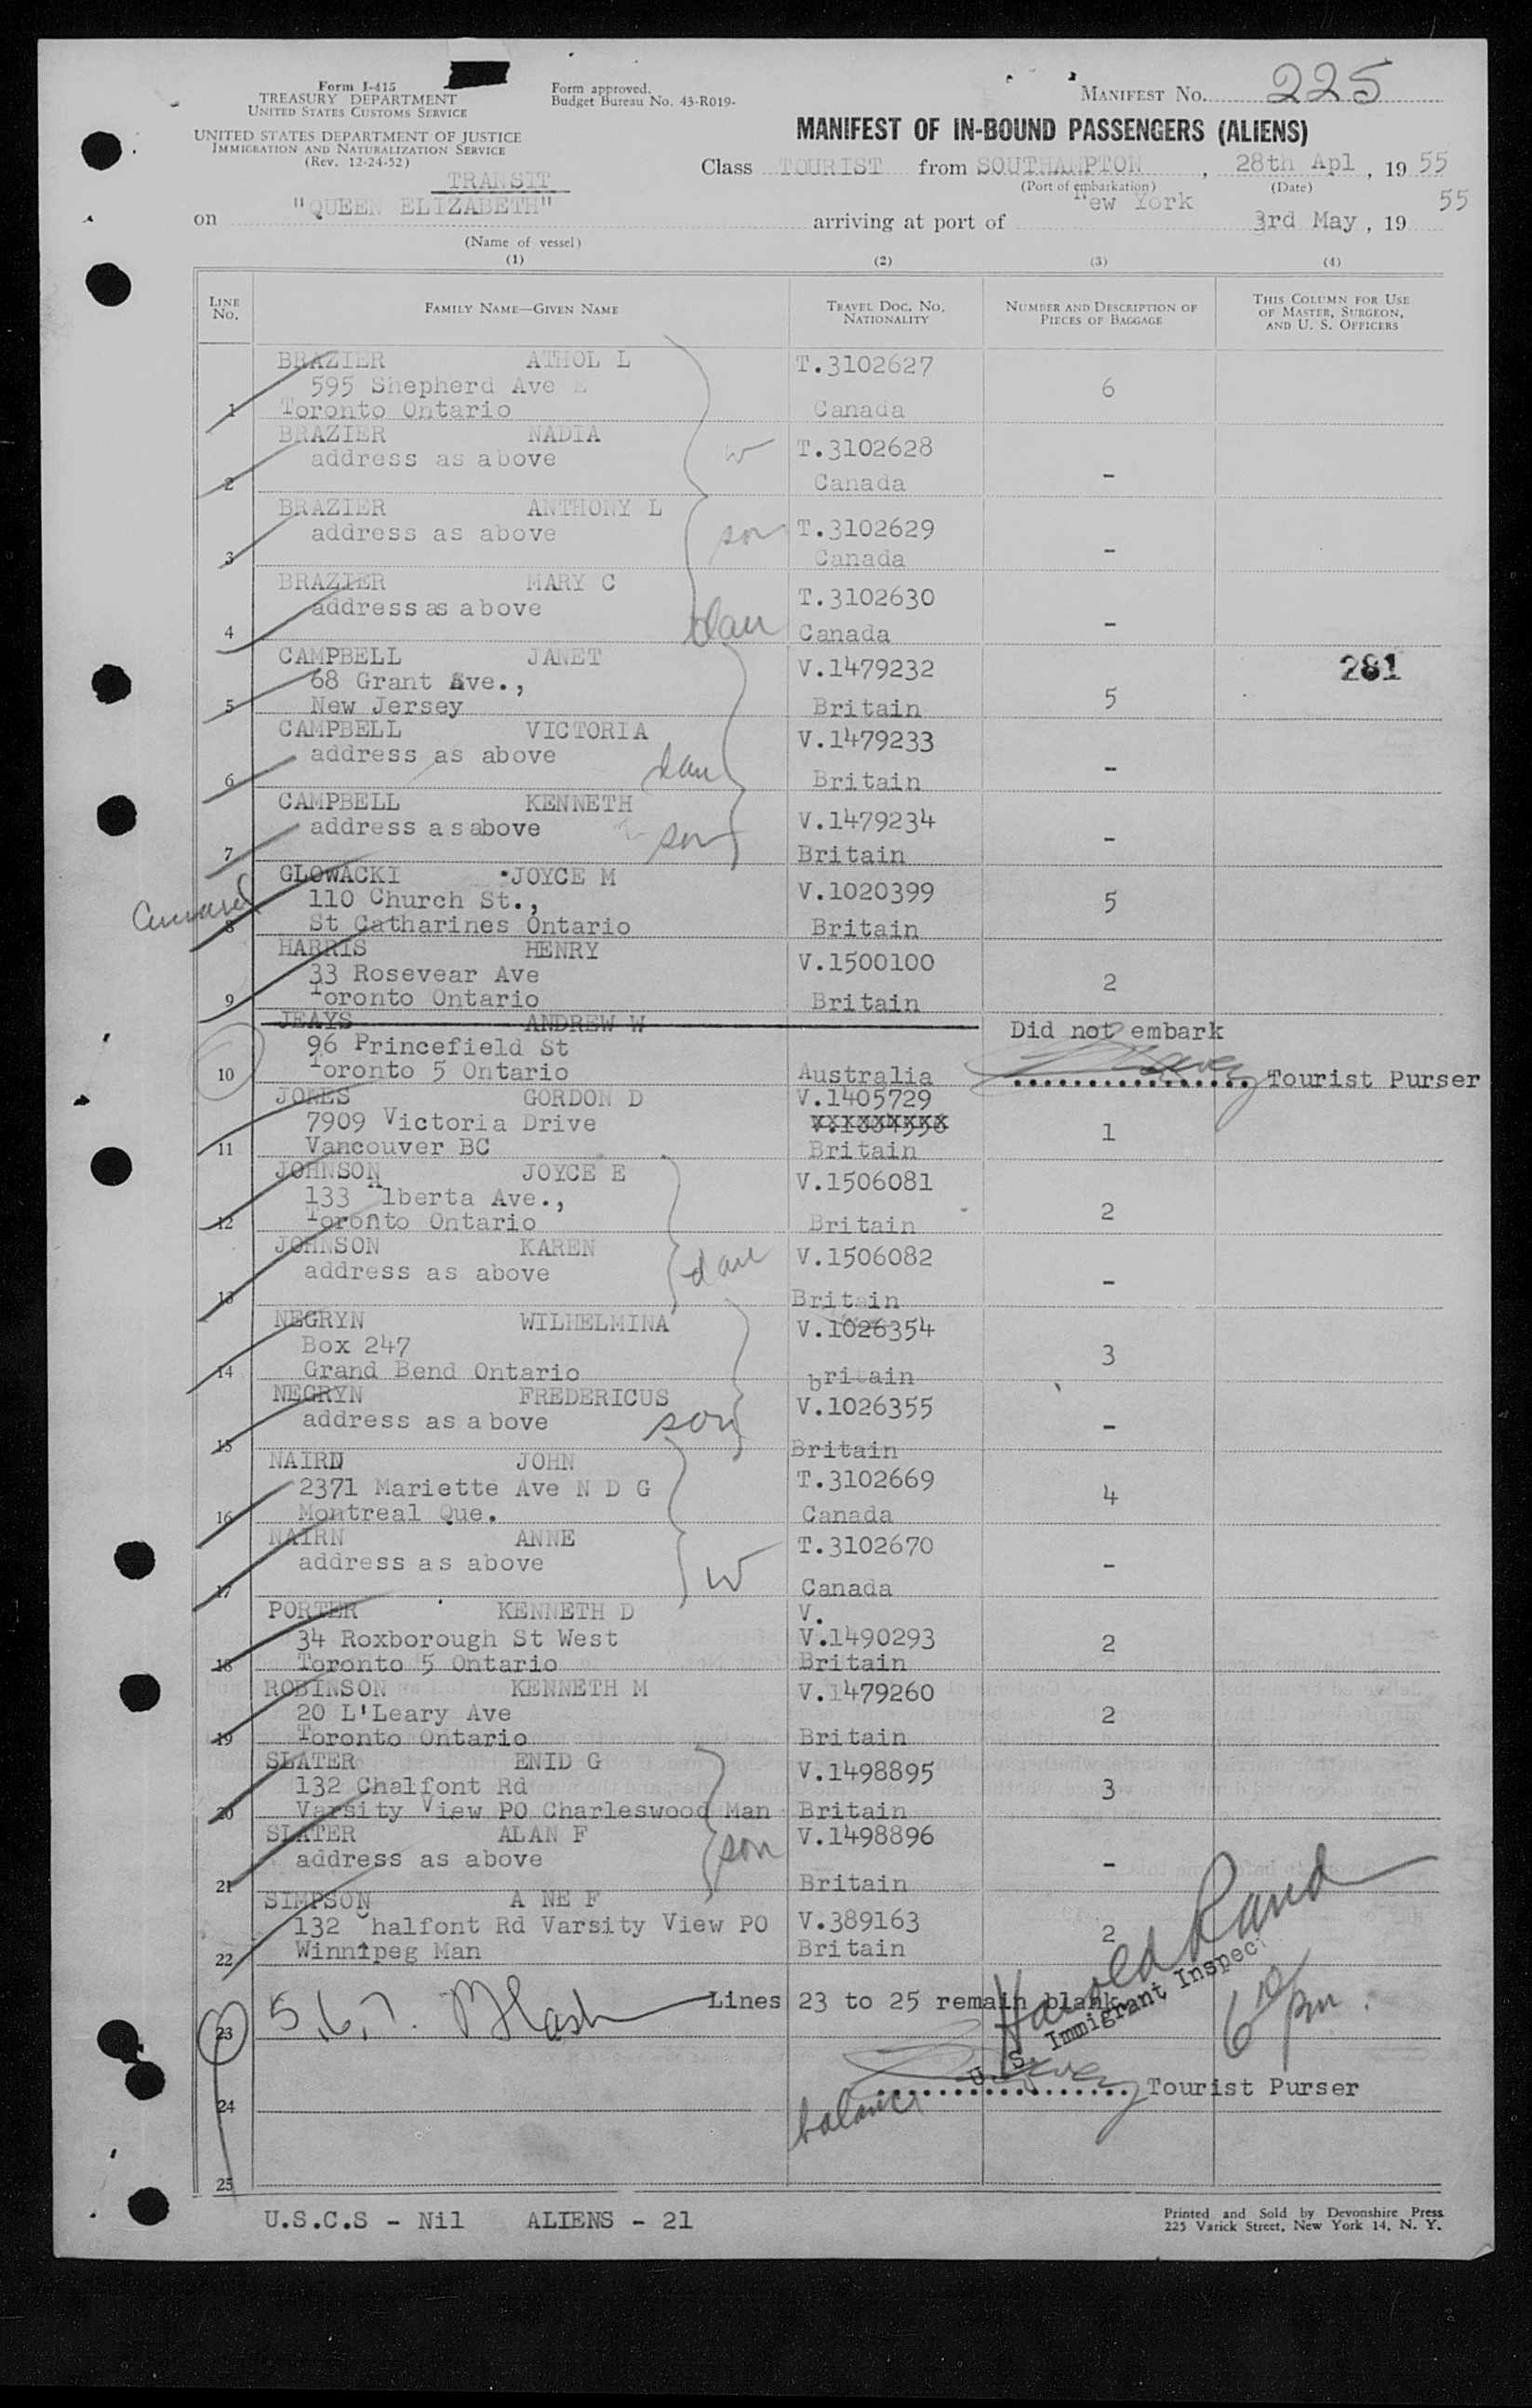 Form I-415
TREASURY DEPARTMENT
UNITED STATES CUSTOMS SERVICE
UNITED STATES DEPARTMENT OF JUSTICE
IMMIGRATION AND NATURALIZATION SERVICE
(Rev. 12-24-52)
Form approved.
Budget Bureau No. 43-R019-
MANIFEST No. 225
MANIFEST OF IN-BOUND PASSENGERS (ALIENS)
Class TOURIST from SOUTHAMPTON, 28th Apl, 19 55
(Port of embarkation) (Date)
TRANSIT
on "QUEEN ELIZABETH" arriving at port of New York 3rd May, 19 55
(Name of vessel)
(1) (2) (3) (4)
LINE No. FAMILY NAME—GIVEN NAME TRAVEL DOC. NO. NATIONALITY NUMBER AND DESCRIPTION OF PIECES OF BAGGAGE THIS COLUMN FOR USE OF MASTER, SURGEON, AND U. S. OFFICERS
BRAZIER ATHOL L T.3102627
595 Shepherd Ave E 6
1 Toronto Ontario Canada
BRAZIER NADIA w T.3102628
address as above
2 Canada -
BRAZIER ANTHONY L
address as above son T.3102629
3 Canada -
BRAZIER MARY C T.3102630
address as above
4 dau Canada -
CAMPBELL JANET V.1479232 281
68 Grant Ave., 5
5 New Jersey Britain
CAMPBELL VICTORIA V.1479233
address as above dau
6 Britain -
CAMPBELL KENNETH V.1479234
address as above son
7 Britain -
GLOWACKI JOYCE M V.1020399
110 Church St., 5
8 St Catharines Ontario Britain
HARRIS HENRY V.1500100
33 Rosevear Ave 2
9 Toronto Ontario Britain
JEAYS ANDREW W Did not embark
96 Princefield St
10 Toronto 5 Ontario Australia Tourist Purser
JONES GORDON D V.1405729
7909 Victoria Drive 1
11 Vancouver BC Britain
JOHNSON JOYCE E V.1506081
133 Alberta Ave., 2
12 Toronto Ontario Britain
JOHNSON KAREN V.1506082
address as above dau
13 Britain -
NEGRYN WILHELMINA V.1026354
Box 247 3
14 Grand Bend Ontario britain
NEGRYN FREDERICUS V.1026355
address as above son
15 Britain -
NAIRN JOHN T.3102669
2371 Mariette Ave N D G 4
16 Montreal Que. Canada
NAIRN ANNE T.3102670
address as above w
17 Canada -
PORTER KENNETH D V.
34 Roxborough St West V.1490293 2
18 Toronto 5 Ontario Britain
ROBINSON KENNETH M V.1479260
20 L'Leary Ave 2
19 Toronto Ontario Britain
SLATER ENID G V.1498895
132 Chalfont Rd 3
20 Varsity View PO Charleswood Man Britain
SLATER ALAN F V.1498896
address as above son
21 Britain -
SIMPSON A NE F
132 Chalfont Rd Varsity View PO V.389163 2
22 Winnipeg Man Britain
Harold Rand
U. S. Immigrant Inspec
6 pm
5,6,7. Lines 23 to 25 remain blank
23
Tourist Purser
24 balance
25
U.S.C.S - Nil ALIENS - 21
Printed and Sold by Devonshire Press
225 Varick Street, New York 14, N. Y.